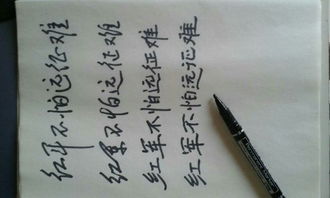 红军不怕远征难
红军不怕远征难
红军不怕远征难
红军不怕远征难